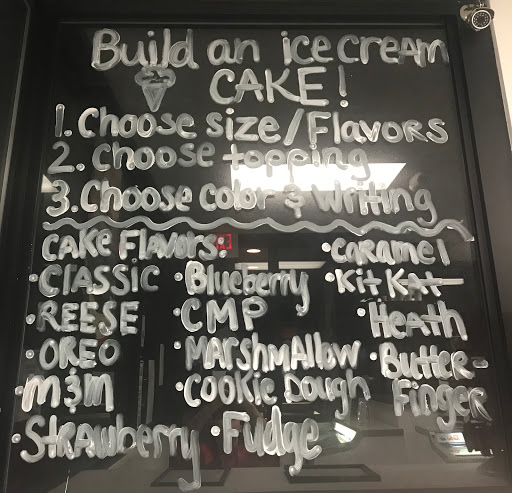 Build an ice cream
CAKE!
1. Choose size/Flavors
2. Choose topping
3. Choose color & Writing
CAKE FLAVORS:
• CLASSIC
• REESE
• OREO
• M&M
• Strawberry
• Blueberry
• CMP
• MARSHMAllOW
• COOKIE DOUGH
• Fudge
• CARAMEl
• KiT KAT
• HEATH
• BUTTER-
FINGER